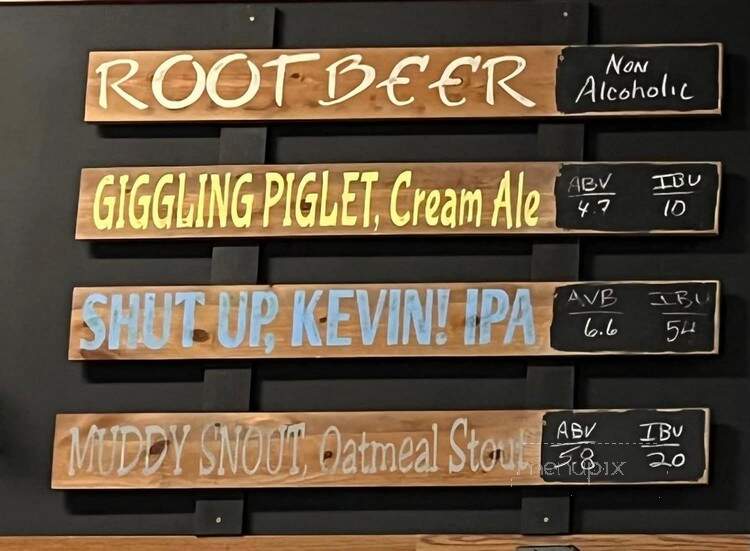 ROOT BEER
Non
Alcoholic
GIGGLING PIGLET, Cream Ale
ABV IBU
4.7 10
SHUT UP, KEVIN! IPA
AVB IBU
6.6 54
MUDDY SNOUT, Oatmeal Stout
ABV IBU
5.8 20
menupix